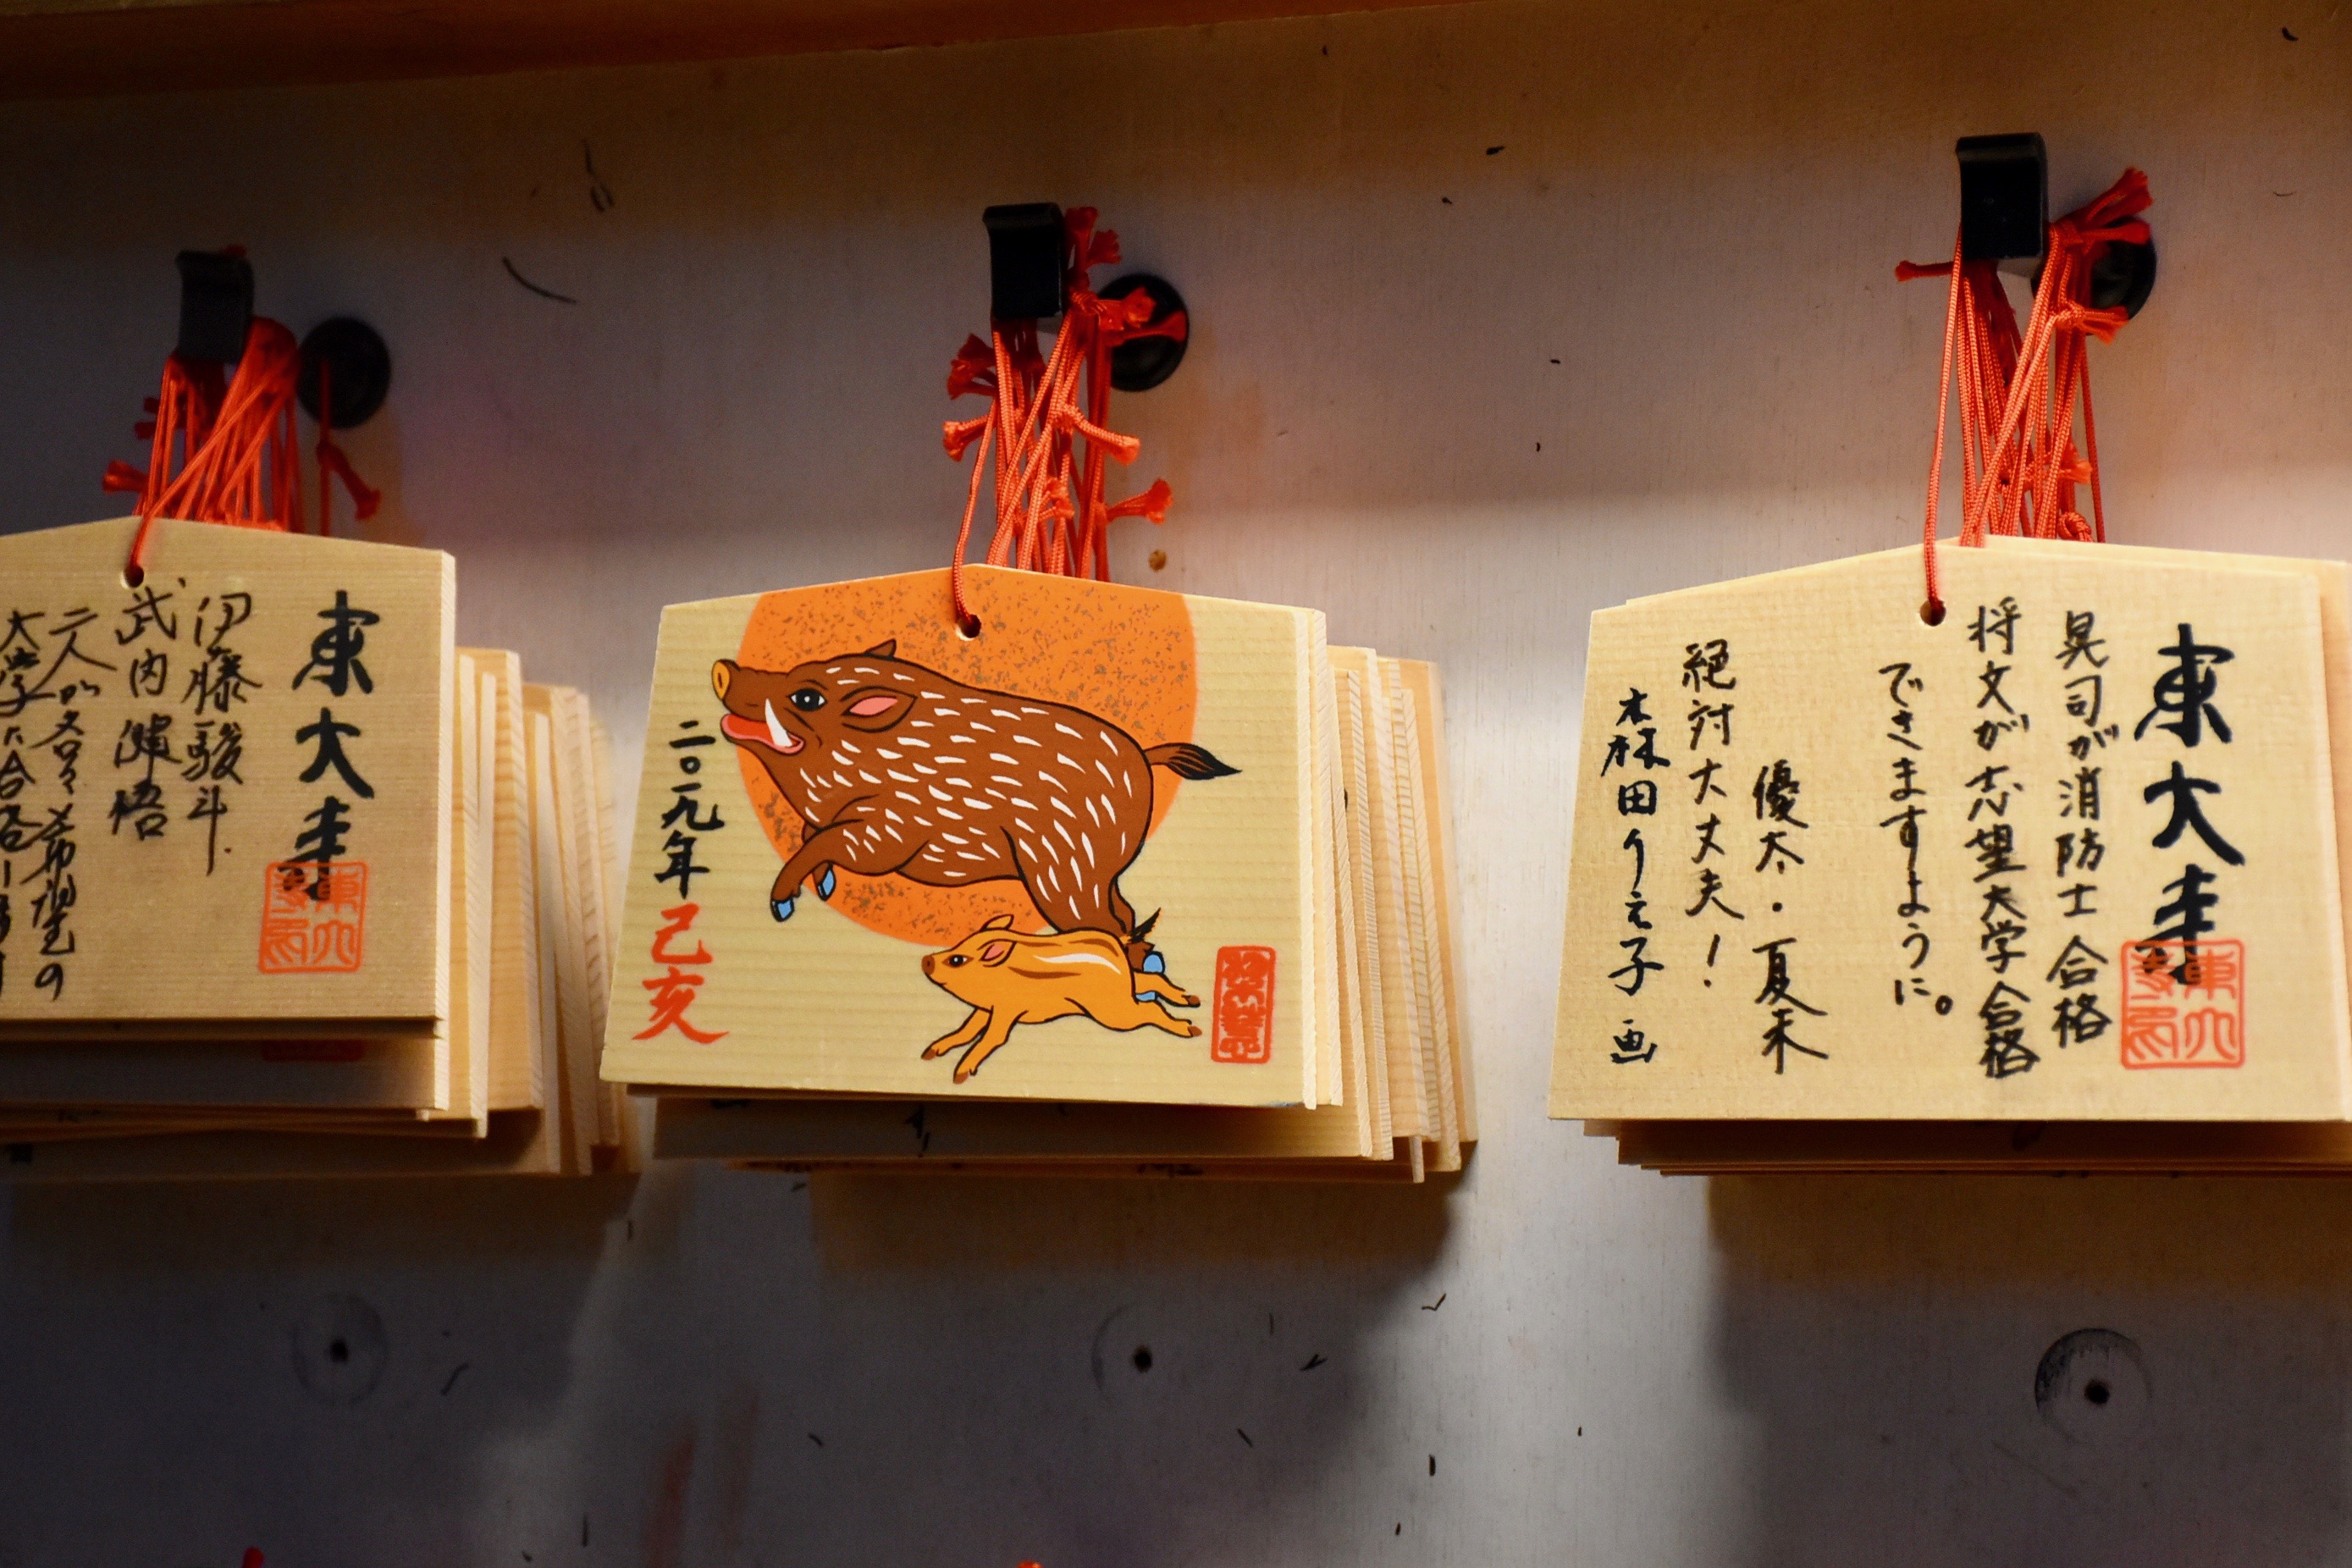 東大寺
伊藤駿斗
武内健悟
二人が各々希望の
大学に合格
二〇一九年
己亥
東大寺
晃司が消防士合格
将文が志望大学合格
できますように。
優太・夏未
絶対大丈夫！
森田りえ子画